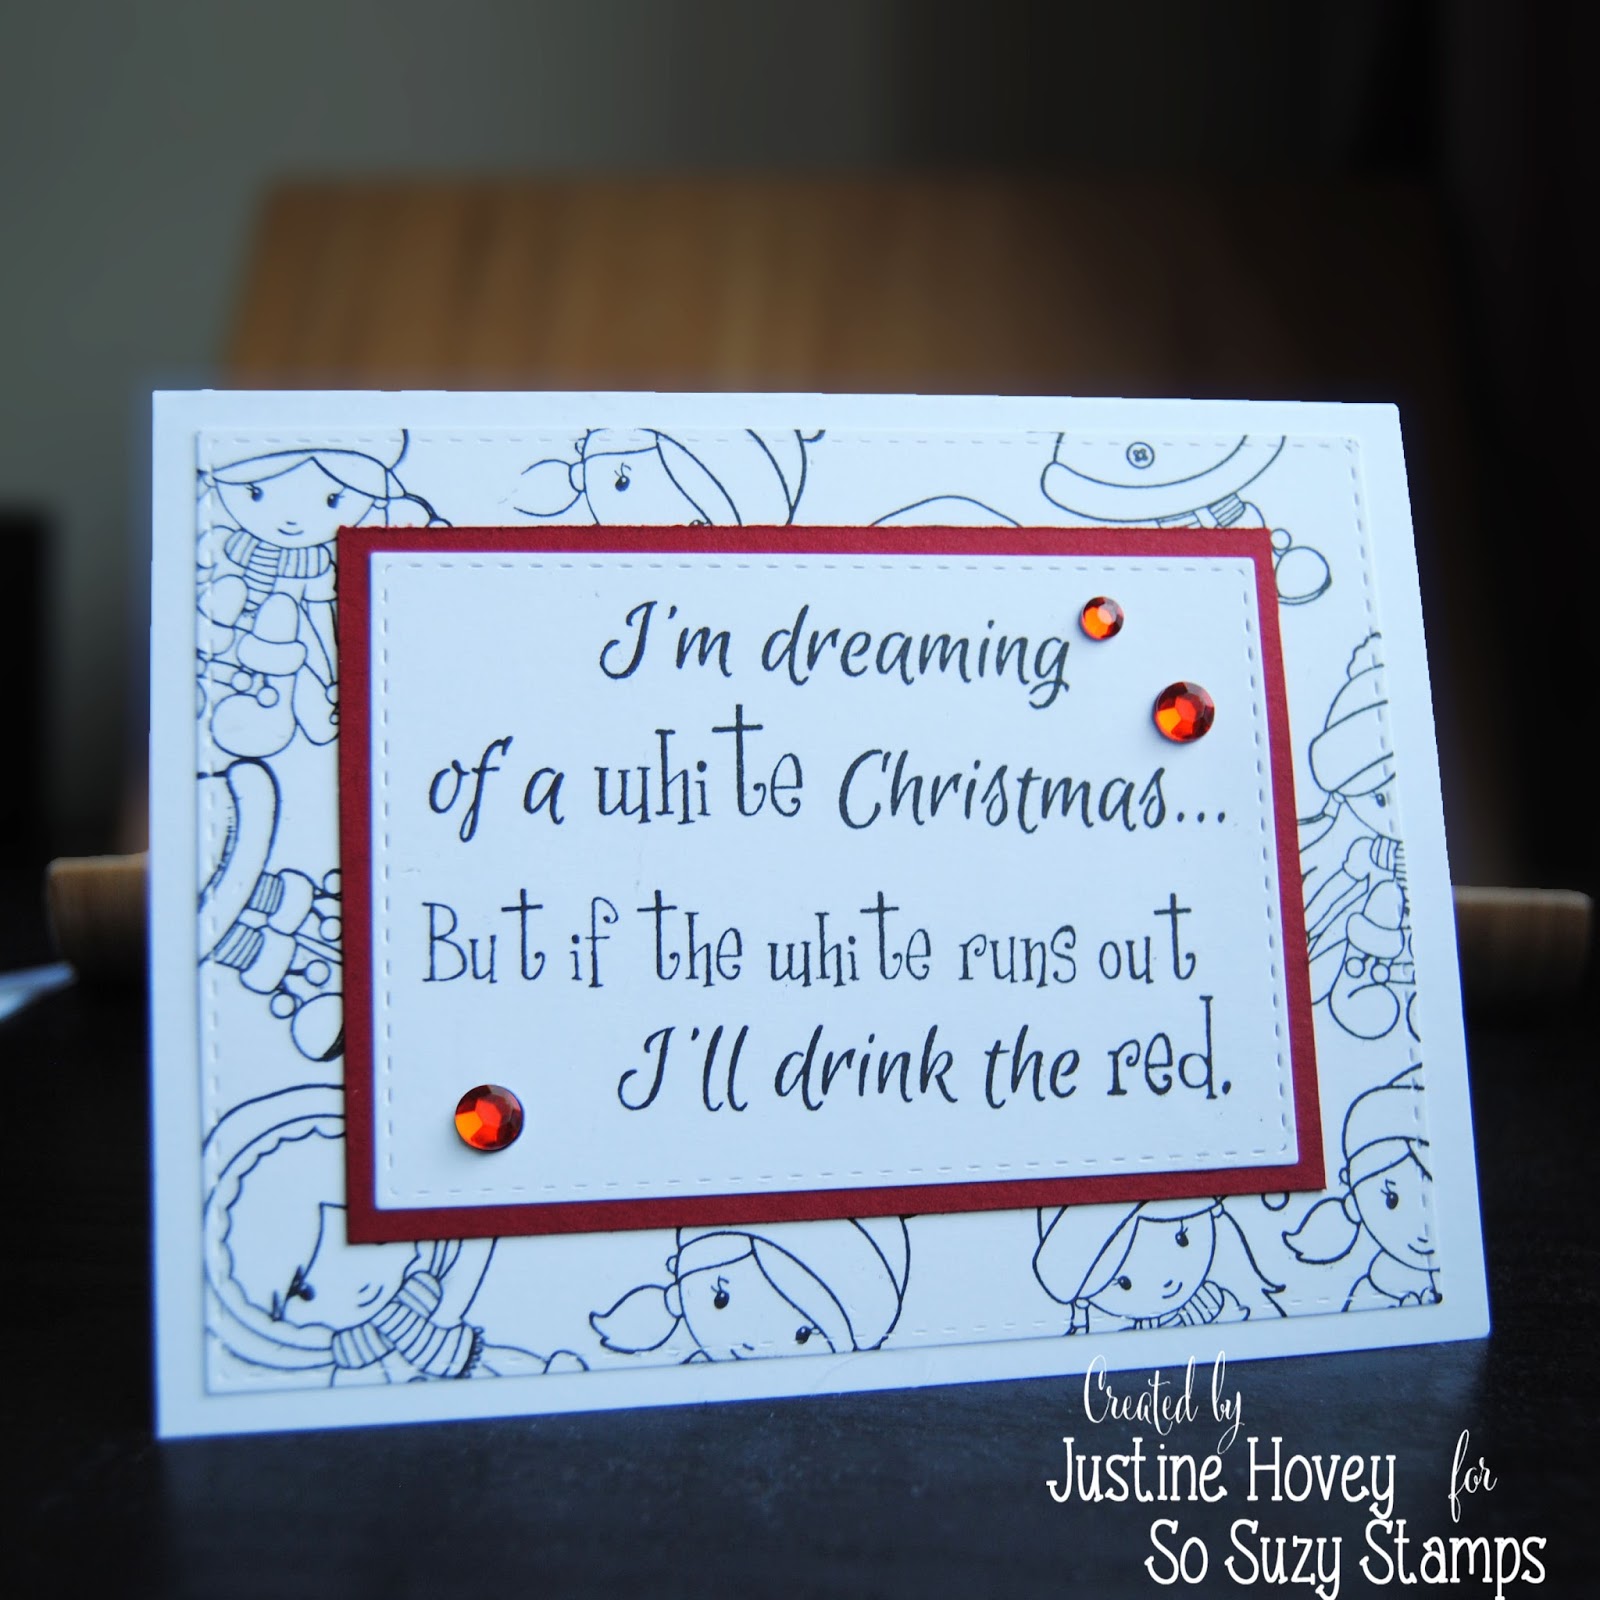 I'm dreaming
of a white Christmas...
But if the white runs out
I'll drink the red.
Created by
Justine Hovey for
So Suzy Stamps